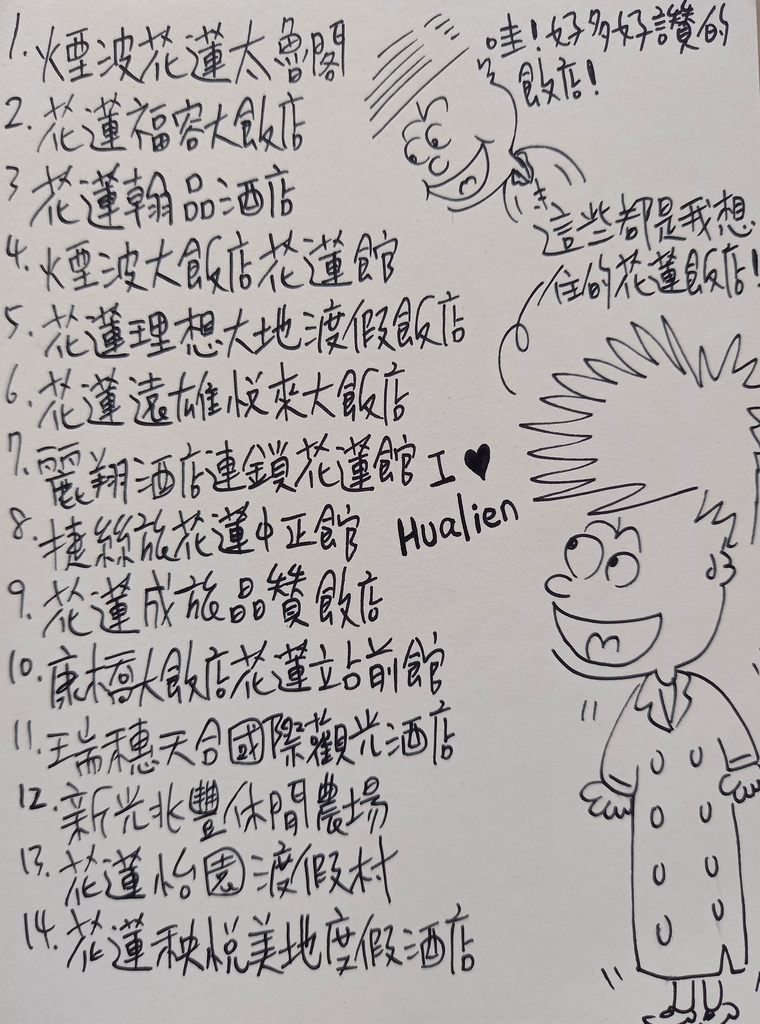 1. 煙波花蓮太魯閣
2. 花蓮福容大飯店
3 花蓮翰品酒店
4. 煙波大飯店花蓮館
5. 花蓮理想大地渡假飯店
6. 花蓮遠雄悅來大飯店
7. 麗翔酒店連鎖花蓮館
8. 捷絲旅花蓮中正館
9. 花蓮成旅晶贊飯店
10. 康橋大飯店花蓮站前館
11. 瑞穗天合國際觀光酒店
12. 新光兆豐休閒農場
13. 花蓮怡園渡假村
14. 花蓮秧悅美地度假酒店
哇!好多好讚的
飯店!
這些都是我想
住的花蓮飯店!
I ♥
Hualien